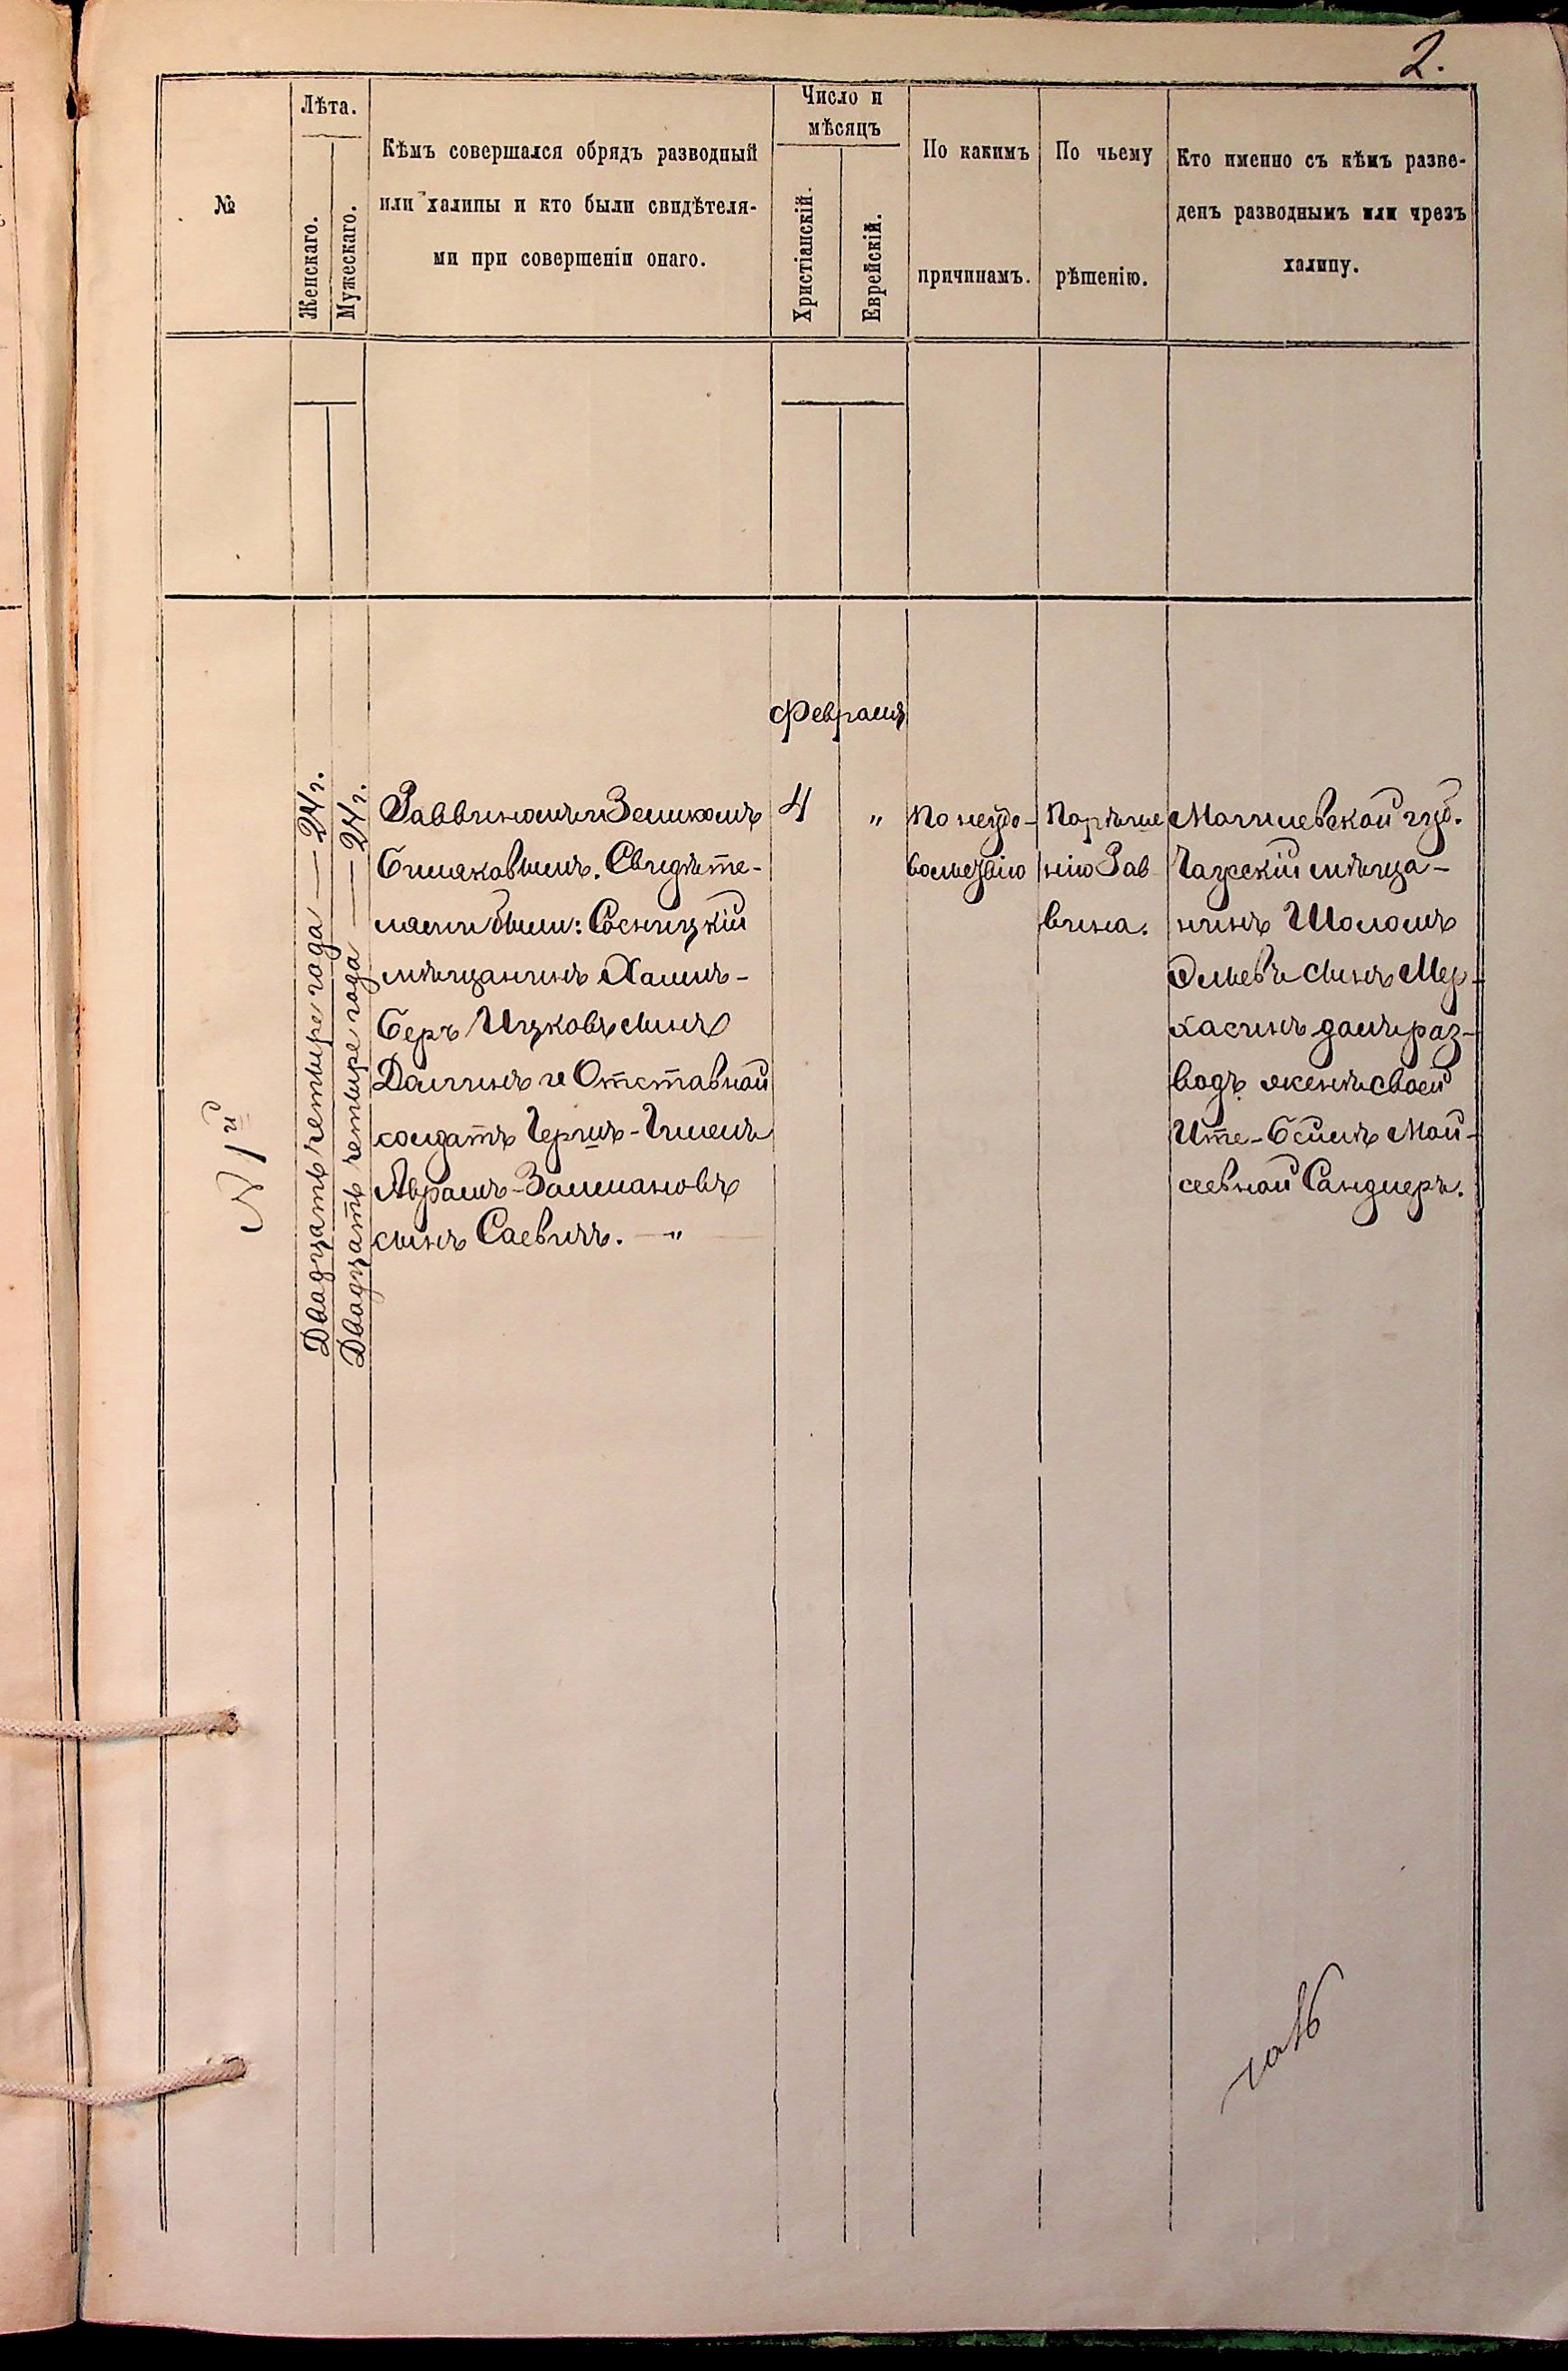 2.
№
Лѣта.
Женскаго.
Мужескаго.
Кѣмъ совершался обрядъ разводный
или халицы и кто были свидѣтеля-
ми при совершеніи онаго.
Число и
мѣсяцъ
Христіанскій.
Еврейскій.
По какимъ
причинамъ.
По чьему
рѣшенію.
Кто именно съ кѣмъ разве-
денъ разводнымъ или чрезъ
халицу.
№ 1й
Двадцать четыре года — 24 г.
Двадцать четыре года — 24 г.
Раввиномъ Зеликомъ
Свидѣте-
лями были: Сосницкій
мѣщанинъ Хаимъ-
Беръ Ицковъ сынъ
и Отставной
солдатъ
Аврамъ-Залмановъ
сынъ Саевичъ. — "
Февраля
4
"
По неудо-
вольствію
По рѣше
нію Рав
вина.
Могилевской губ.
Чаусскій мѣща-
нинъ Шоломъ
сынъ Мер-
хасинъ далъ раз-
водъ женѣ своей
Мои-
сеевной Сандлеръ.